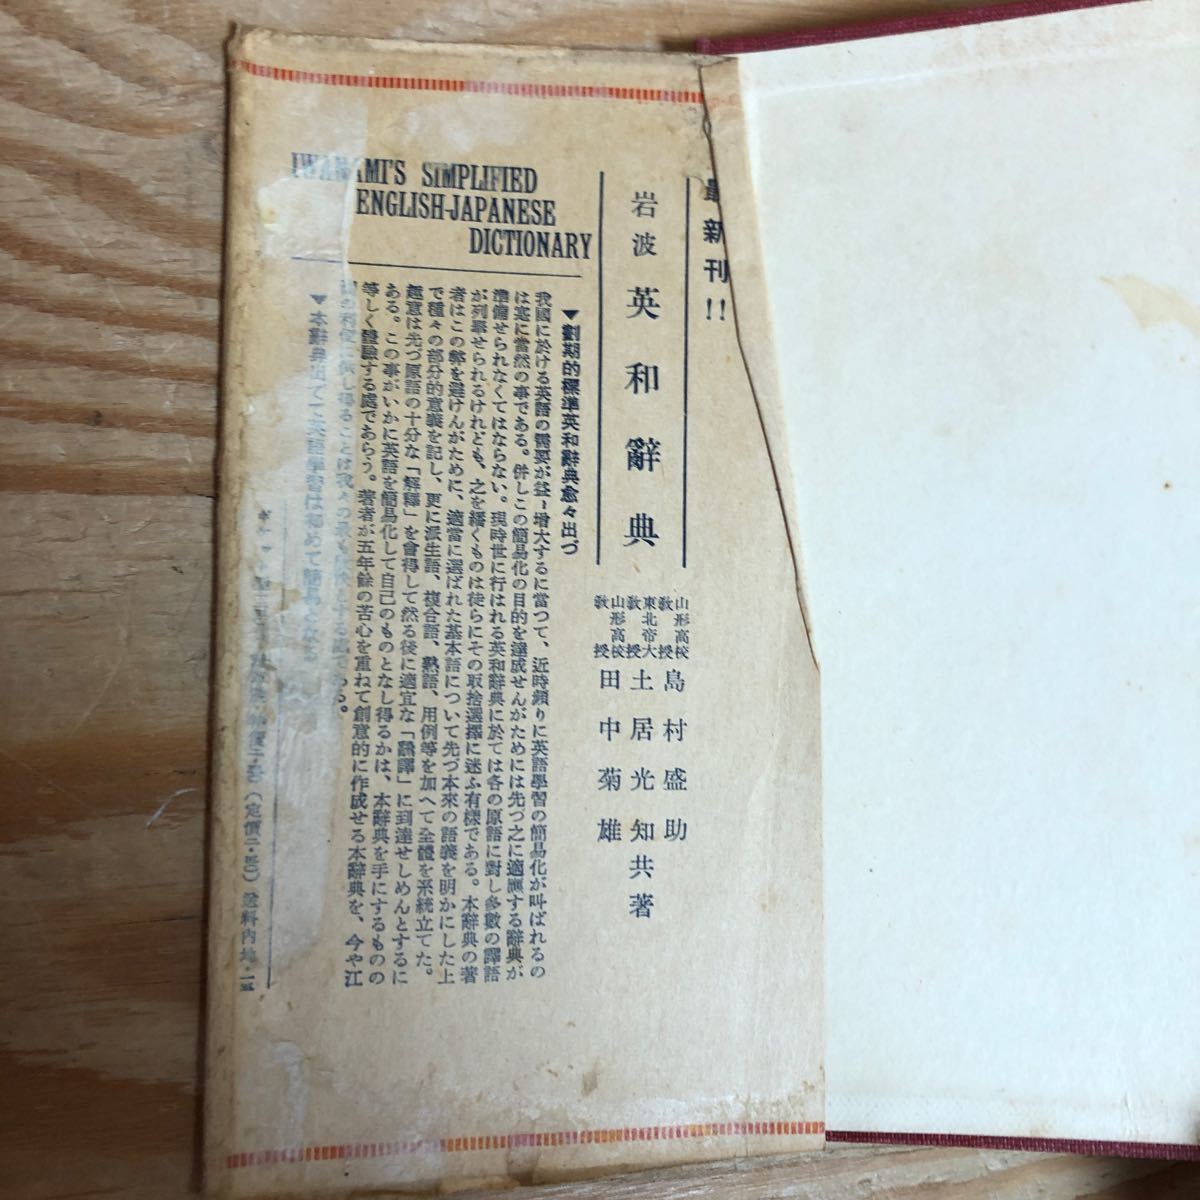 最新刊!!
岩波英和辭典
山形高校教授 島村盛助
東北帝大教授 土居光知共著
山形高校教授 田中菊雄
IWANAMI'S SIMPLIFIED
ENGLISH-JAPANESE
DICTIONARY
▼劃期的標準英和辭典愈々出づ
我國に於ける英語の需要が益〻増大するに當つて、近時頻りに英語學習の簡易化が叫ばれるの
は寔に當然の事である。併しこの簡易化の目的を達成せんがためには先づ之に適應する辭典が
準備せられなくてはならない。現時世に行はれる英和辭典に於ては各の原語に對し多數の譯語
が列擧せられるけれども、之を繙くものは徒らにその取捨選擇に迷ふ有樣である。本辭典の著
者はこの弊を避けんがために、適當に選ばれた基本語について先づ本來の語義を明かにした上
で種々の部分的意義を記し、更に派生語、複合語、熟語、用例等を加へて全體を系統立てた。
趣意は先づ原語の十分な「解釋」を會得して然る後に適宜な「飜譯」に到達せしめんとするに
ある。この事がいかに英語を簡易化して自己のものとなし得るかは、本辭典を手にするものの
等しく體驗する處であらう。著者が五年餘の苦心を重ねて創意的に作成せる本辭典を、今や江
湖の利便に供し得ることは我々の最も欣快とする處である。
▼本辭典出でて英語學習は初めて簡易となる
(定價二・五〇) 送料内地・一五